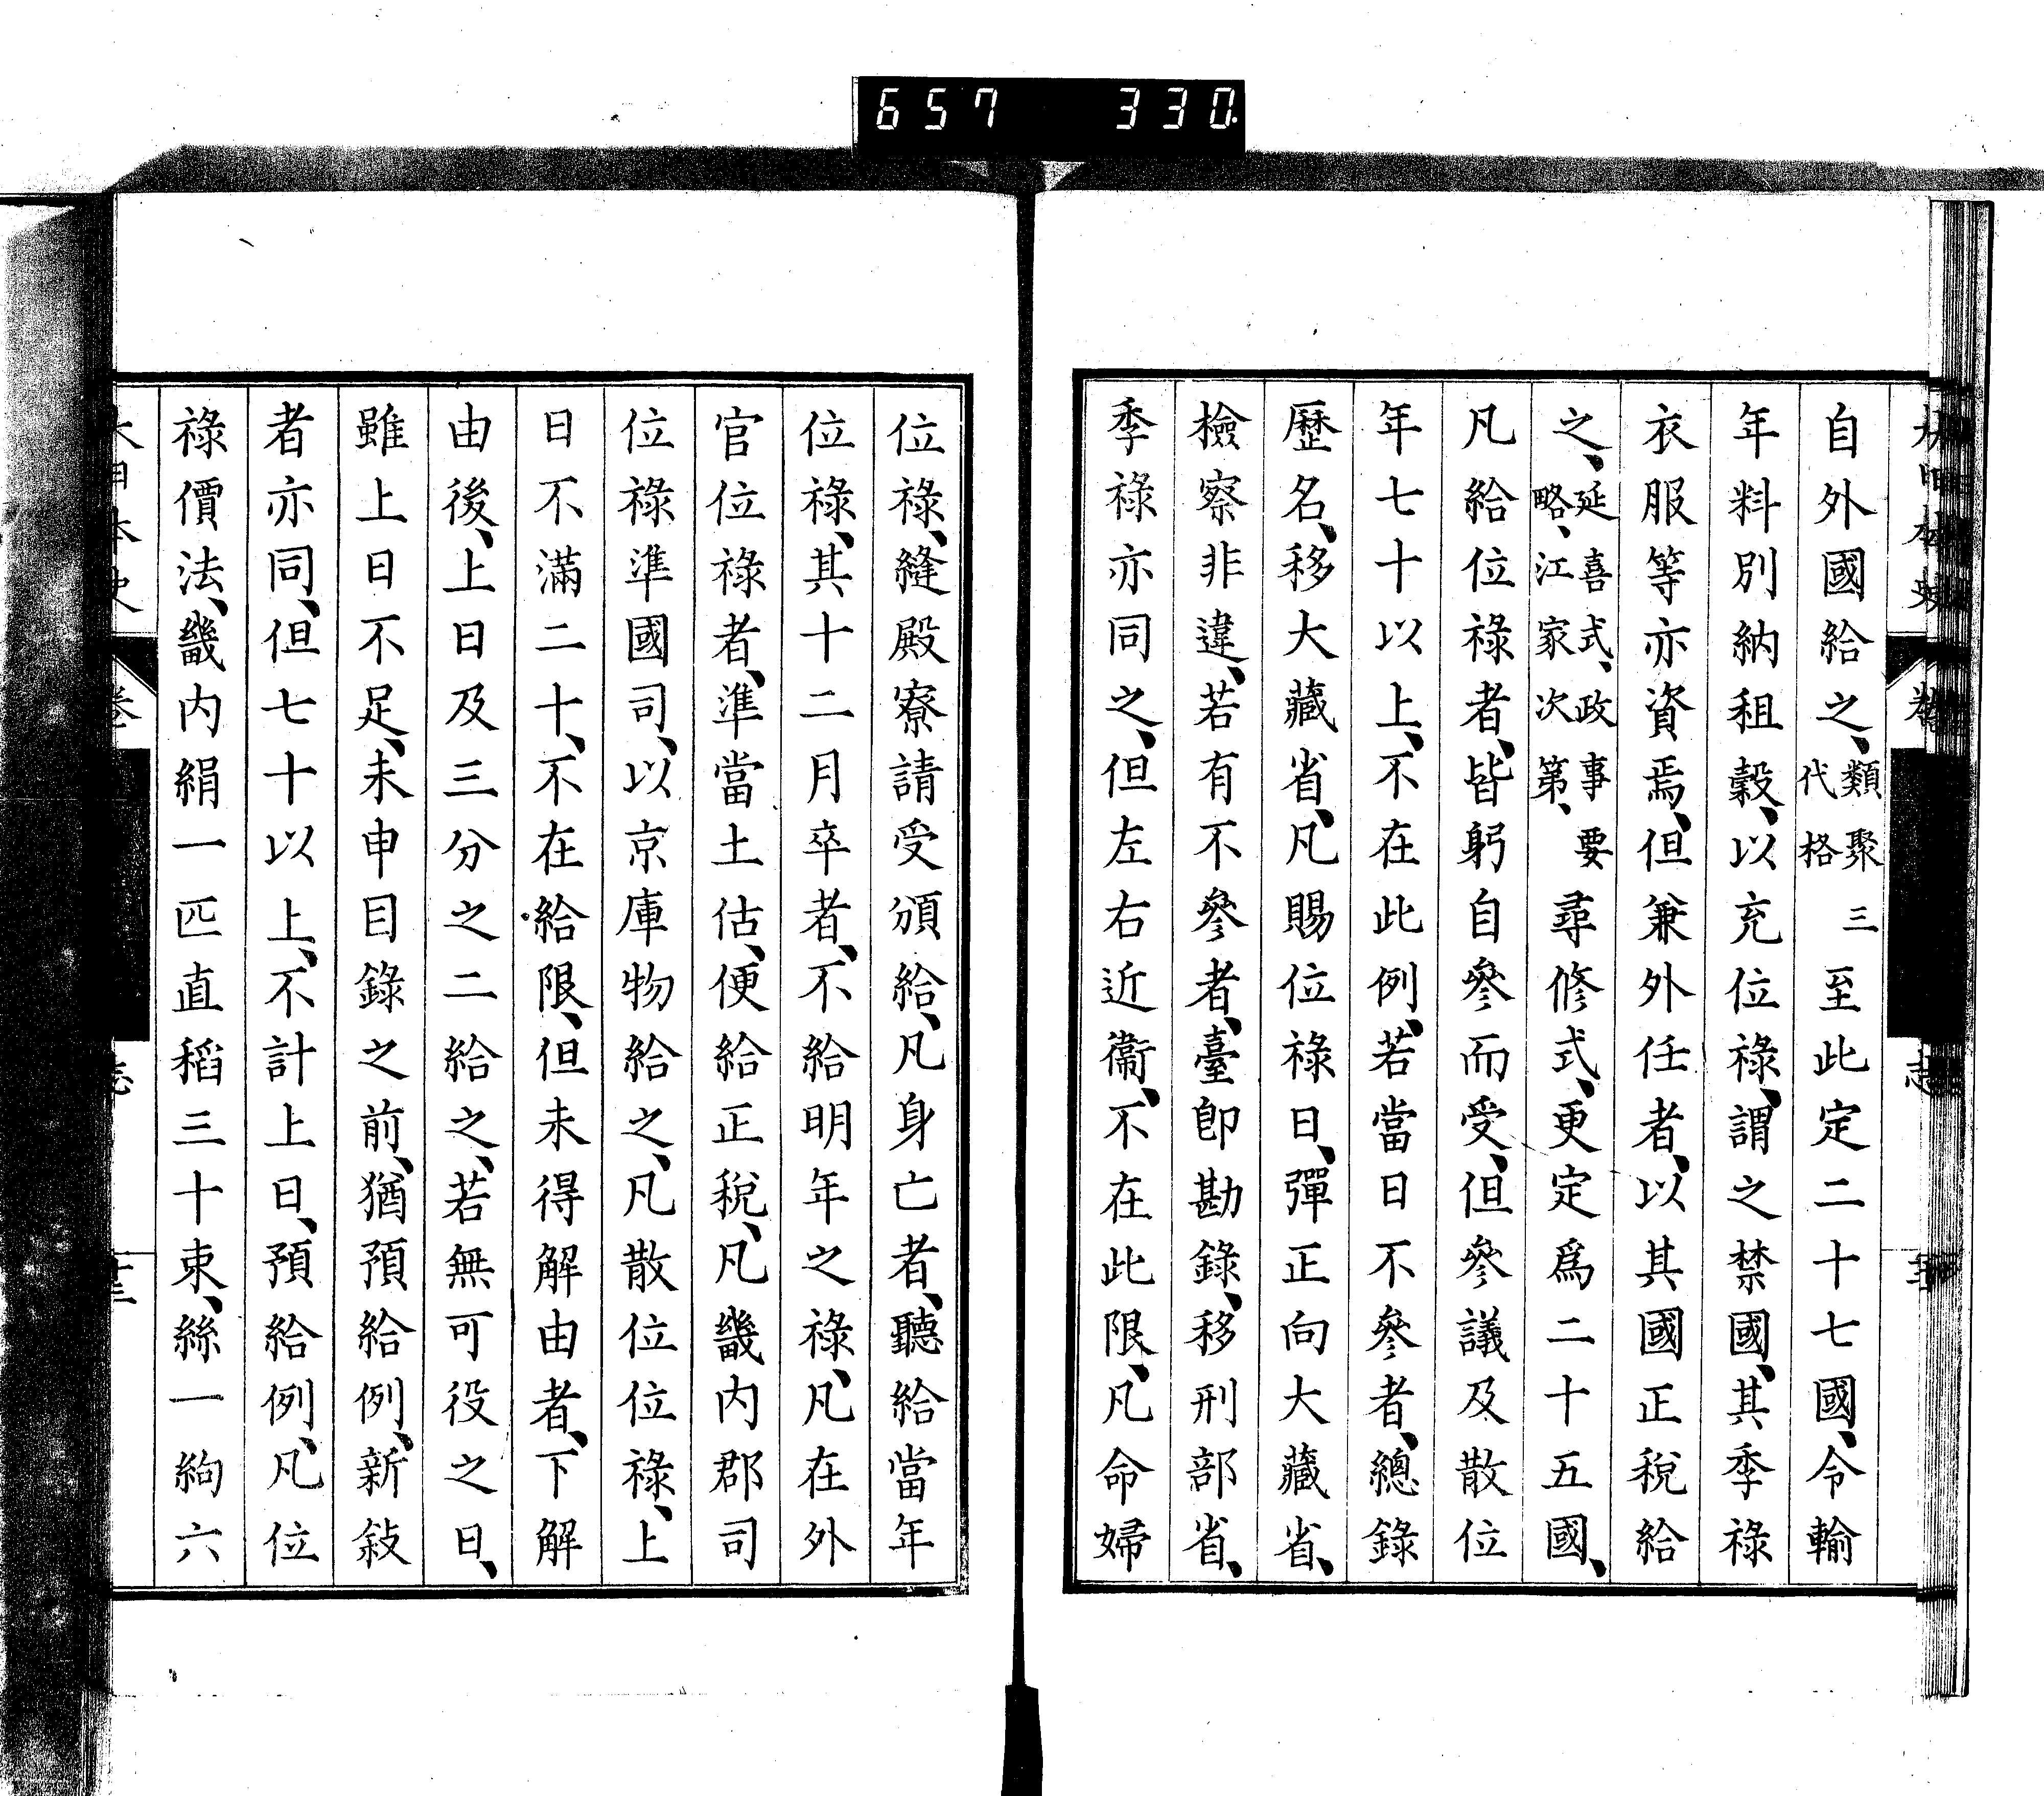 657 330
自外國給之、類聚三代格至此定二十七國、令輸
年料別納租穀、以充位祿、謂之禁國、其季祿
衣服等亦資焉、但兼外任者、以其國正稅給
之、延喜式、政事要略、江家次第、尋修式、更定爲二十五國、
凡給位祿者、皆躬自參而受、但參議及散位
年七十以上、不在此例、若當日不參者、總錄
歷名、移大藏省、凡賜位祿日、彈正向大藏省、
檢察非違、若有不參者、臺卽勘錄、移刑部省、
季祿亦同之、但左右近衞、不在此限、凡命婦
位祿、縫殿寮請受頒給、凡身亡者、聽給當年
位祿、其十二月卒者、不給明年之祿、凡在外
官位祿者、準當土估、便給正稅、凡畿內郡司
位祿準國司、以京庫物給之、凡散位位祿、上
日不滿二十、不在給限、但未得解由者、下解
由後、上日及三分之二給之、若無可役之日、
雖上日不足、未申目錄之前、猶預給例、新敍
者亦同、但七十以上、不計上日、預給例、凡位
祿價法、畿內絹一匹直稻三十束、絲一絇六